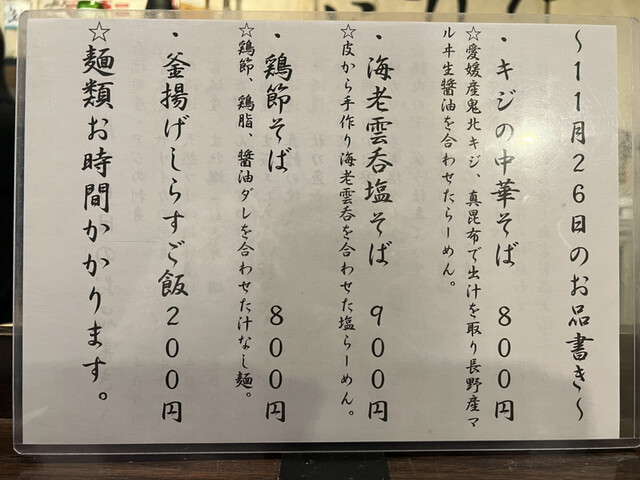 ～11月26日のお品書き～
・キジの中華そば　800円
☆愛媛産鬼北キジ、真昆布で出汁を取り長野産マ
ルヰ生醤油を合わせたらーめん。
・海老雲呑塩そば　900円
☆皮から手作り海老雲呑を合わせた塩らーめん。
・鶏節そば　800円
☆鶏節、鶏脂、醤油ダレを合わせた汁なし麺。
・釜揚げしらすご飯200円
☆麺類お時間かかります。